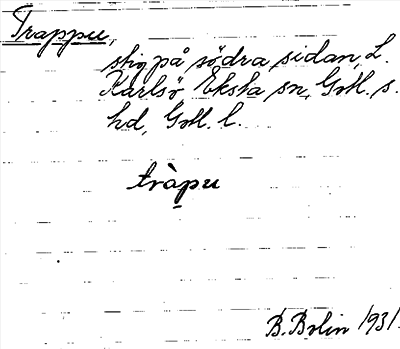 Trappu,
stig på södra sidan, L.
Karlsö Eksta sn, Gotl. s.
hd, Gotl. l.
tràpu
B. Bolin 1931.